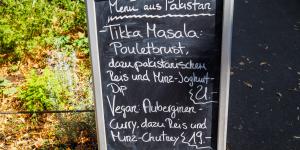 Menü aus Pakistan
Tikka Masala:
Pouletbrust,
dazu pakistanischen
Reis und Minz-Joghurt-
Dip 21.-
Vegan: Auberginen-
Curry, dazu Reis und
Minz-Chutney 19.-